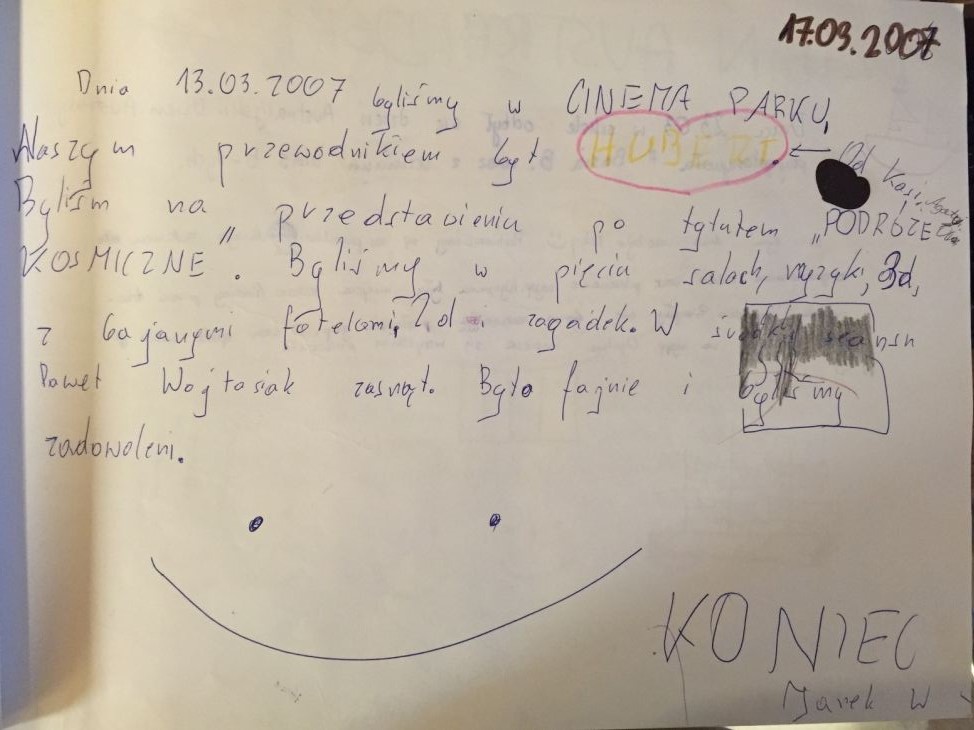 17.03.2007
Dnia 13.03.2007 byliśmy w CINEMA PARKU,
Naszym przewodnikiem był HUBERT. ← Od Kasi, Agaty
Byliśm na przedstawieniu po tytułem „PODRÓŻE
KOSMICZNE". Byliśmy w pięciu salach, muzyki, 3d,
z bajanymi fotelami, 2d i zagadek. W środku seansu
Paweł Wojtasiak zasnął. Było fajnie i byliśmy
zadowoleni.
KONIEC
Jarek W